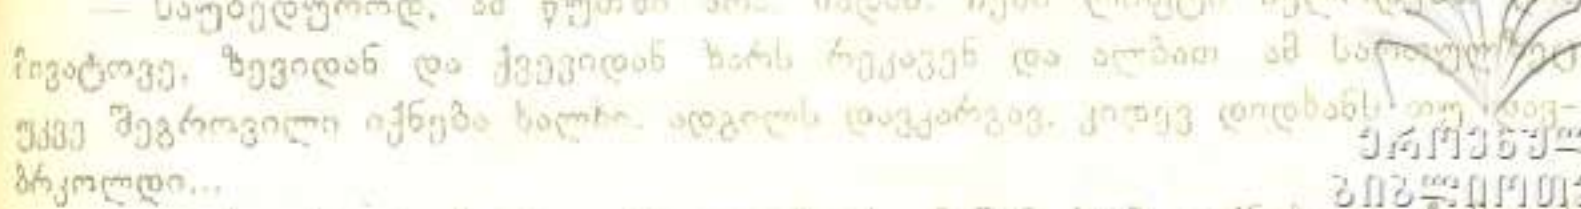 — საუბედუროდ, ამ წუთში არა.
მივატოვე, ზევიდან და ქვევიდან ზარს რეკავენ და ალბათ ამ სართულზეც
უკვე შეგროვილი იქნება ხალხი. ადგილს დავკარგავ, კიდევ დიდხანს თუ დავ-
ბრკოლდი...
ეროვნულ
ბიბლიოთე